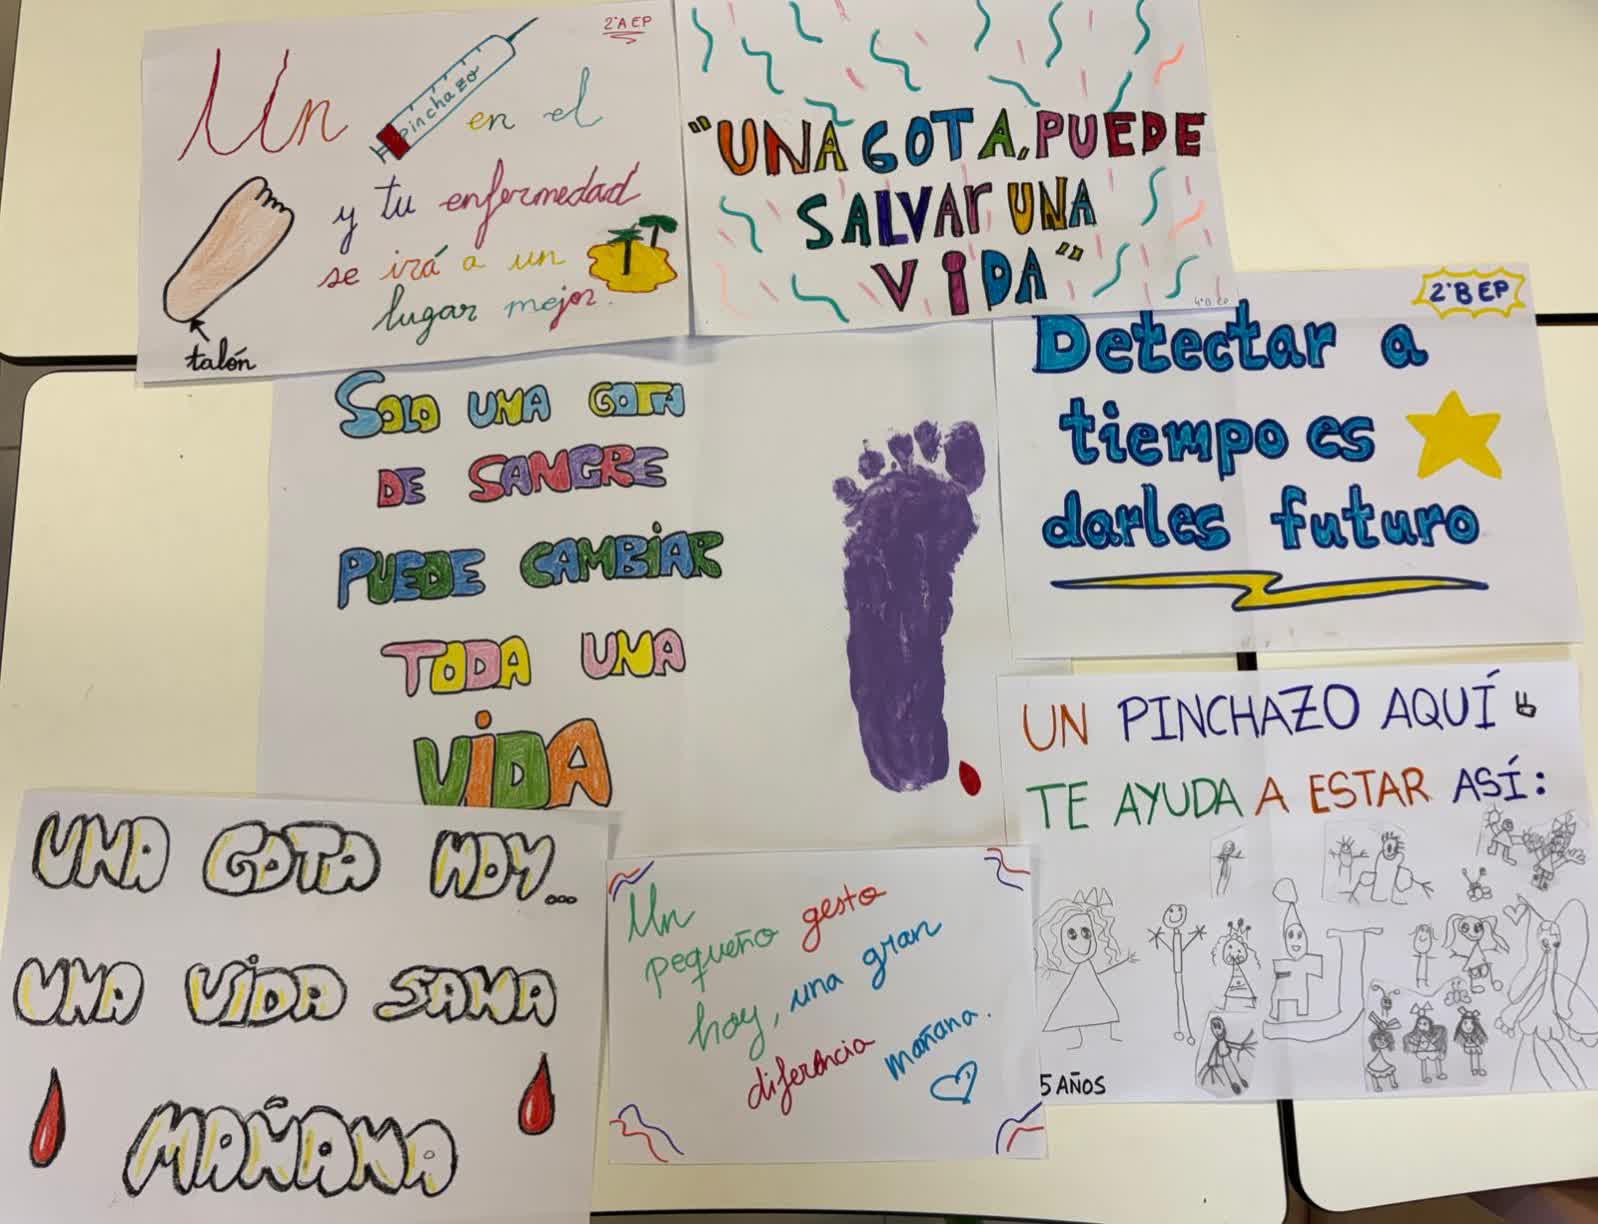 2ºA EP
Un pinchazo en el
y tu enfermedad
se irá a un
lugar mejor.
talón
"UNA GOTA, PUEDE
SALVAR UNA
VIDA"
2ºB EP
Detectar a
tiempo es
darles futuro
SOLO UNA GOTA
DE SANGRE
PUEDE CAMBIAR
TODA UNA
VIDA
UN PINCHAZO AQUÍ
TE AYUDA A ESTAR ASÍ:
5 AÑOS
UNA GOTA HOY...
UNA VIDA SANA
MAÑANA
Un
pequeño gesto
hoy, una gran
diferencia mañana.